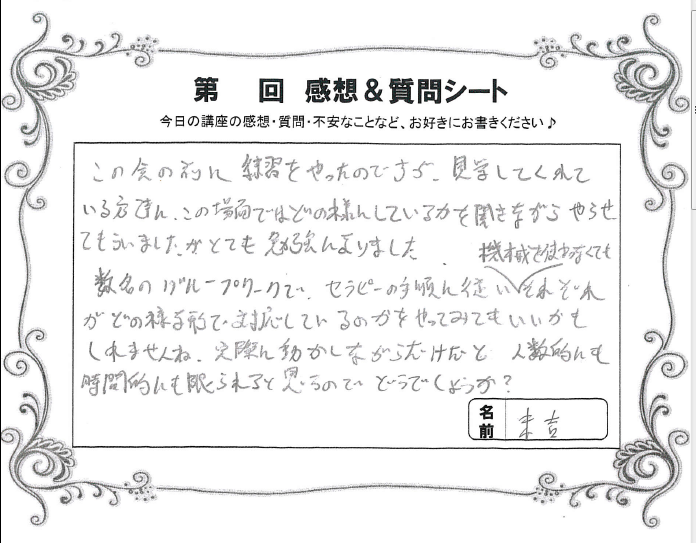 第　回 感想＆質問シート
今日の講座の感想・質問・不安なことなど、お好きにお書きください♪
この会の前に 練習をやったのですが、見学してくれて
いる方達に、この場面ではどの様にしているかを聞きながら やらせ
てもらいました。がとても 勉強になりました。
機械を使わなくても
数名の グループワークで、セラピーの手順に従い それぞれ
が どの様な形で 対応しているのかを やってみても いいかも
しれませんね。実際に 動かしながらだけだと 人数的にも
時間的にも 限られると 思うので どうでしょうか？
名前 末吉